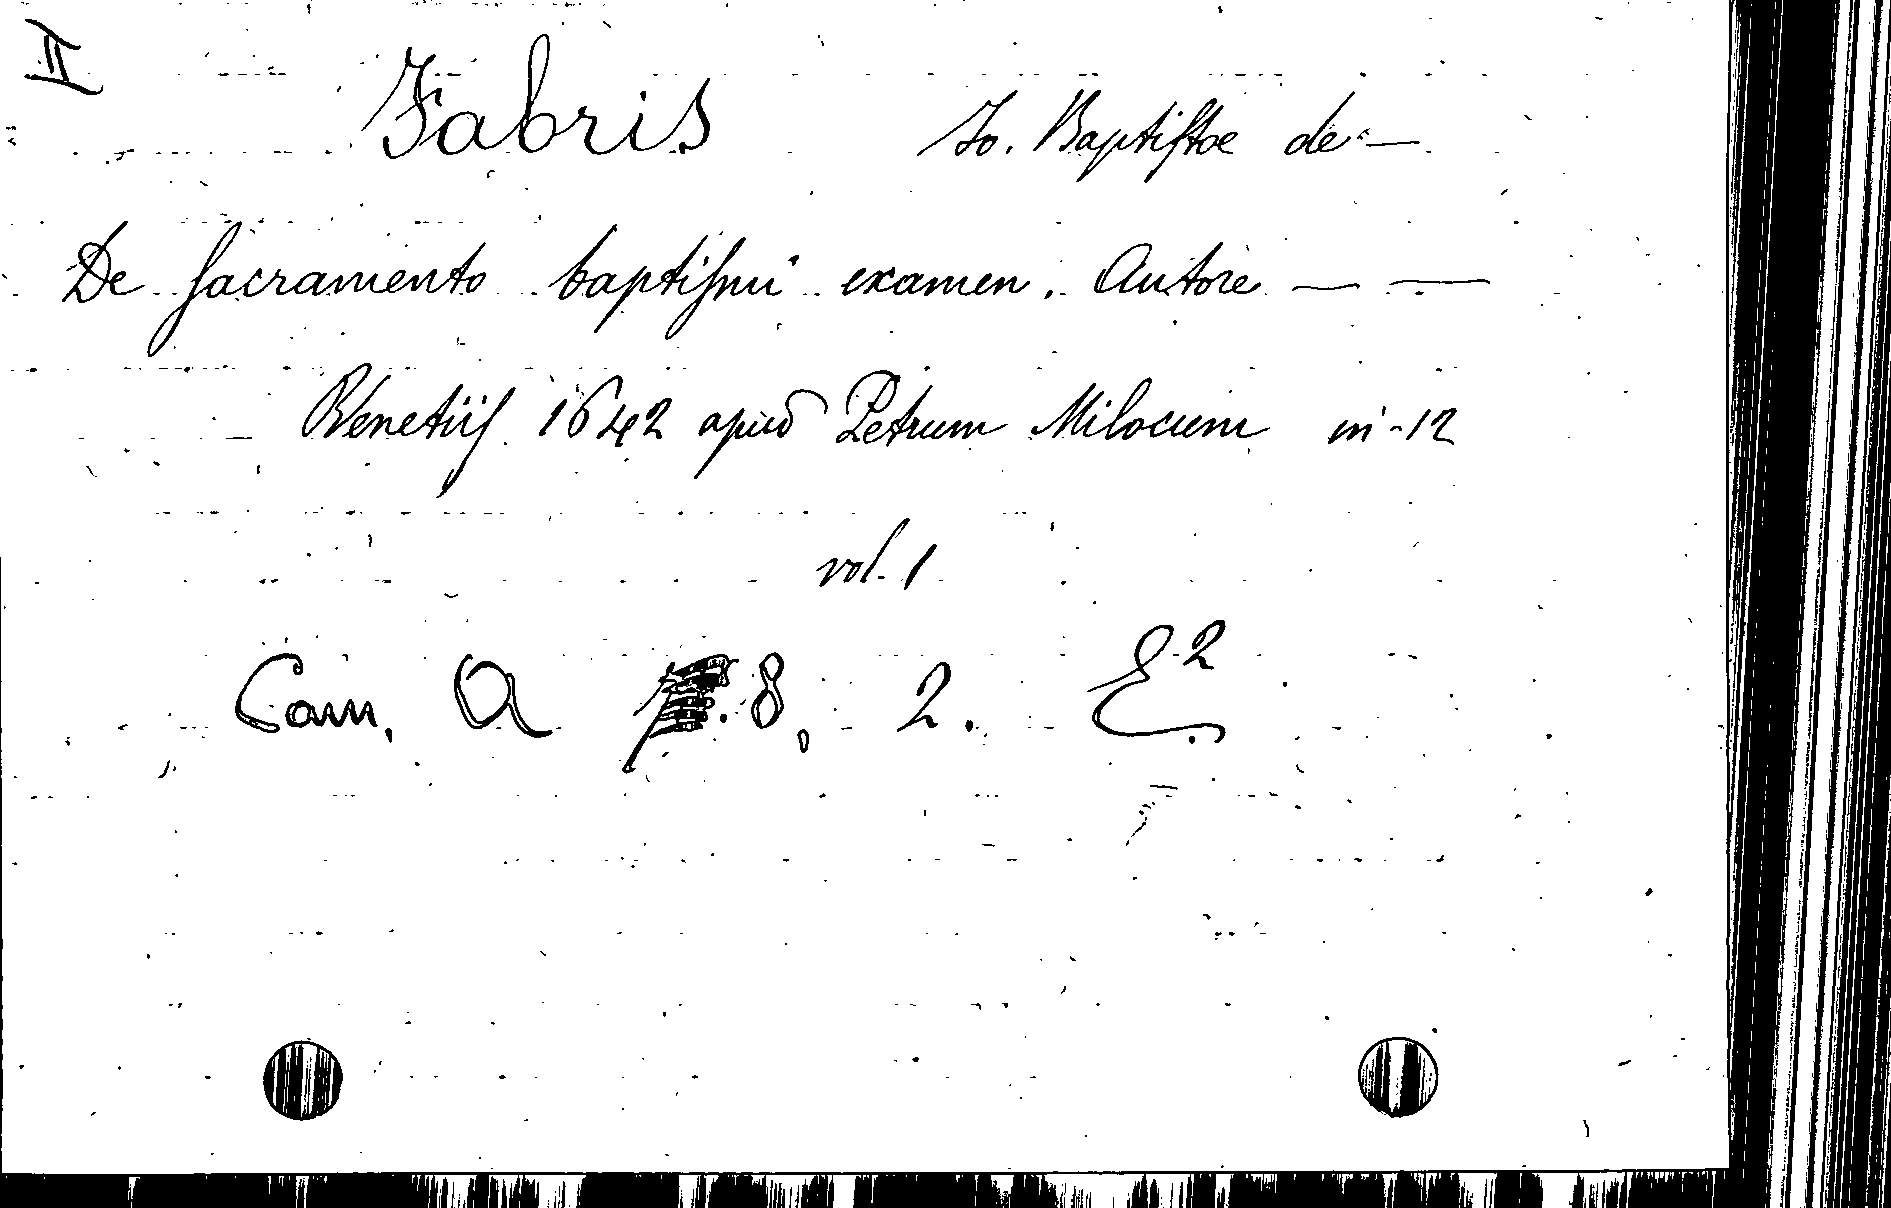 II
Fabris Jo. Baptistae de —
De sacramento baptismi examen. Autore — —
Venetiis 1642 apud Petrum Milocum in-12
vol. 1
Cam. A 8, 2. E²